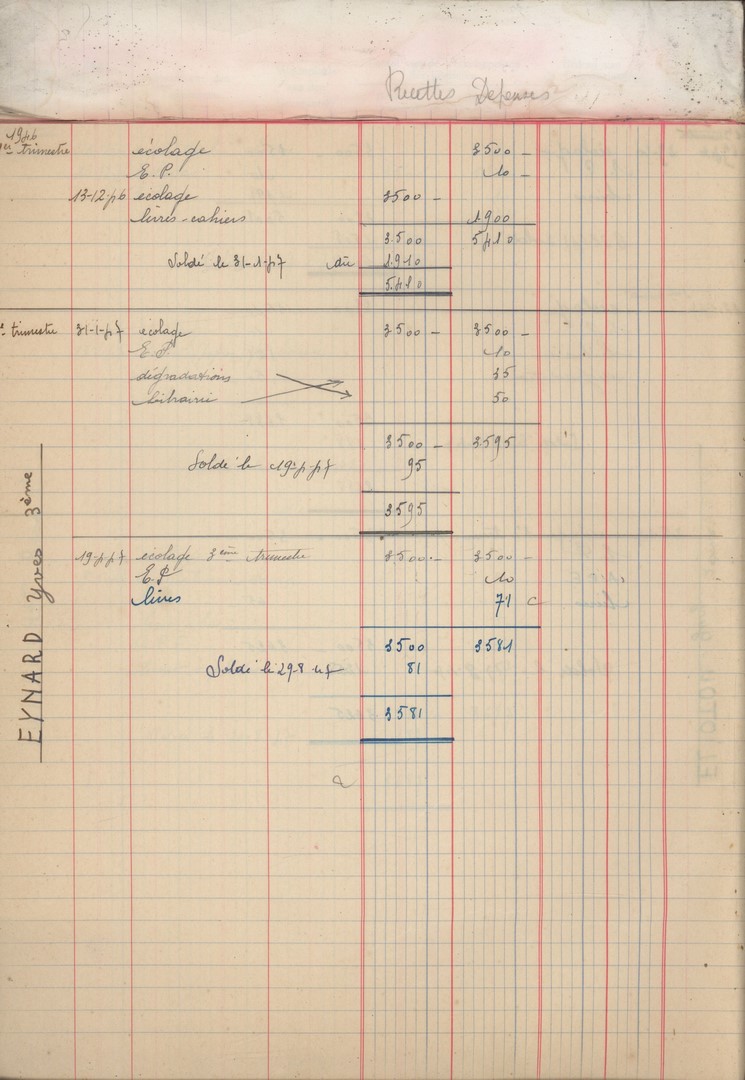 Recettes Depenses
1946
1er trimestre écolage 3500 —
E. P. 10 —
13-12-46 écolage 3500 —
livres-cahiers 1900
3.500 5410
Soldé le 31-1-47 dû 1.910
5.410
2e trimestre 31-1-47 écolage 3500 — 3500 —
E. P. 10
dégradations 35
librairie 50
3500 — 3595
Soldé le 19-4-47 95
3595
EYNARD Yves 3ème
19-4-47 écolage 3ème trimestre 3500.— 3500 —
E. P. 10
livres 71 c
3500 3581
Soldé le 29-8-47 81
3581